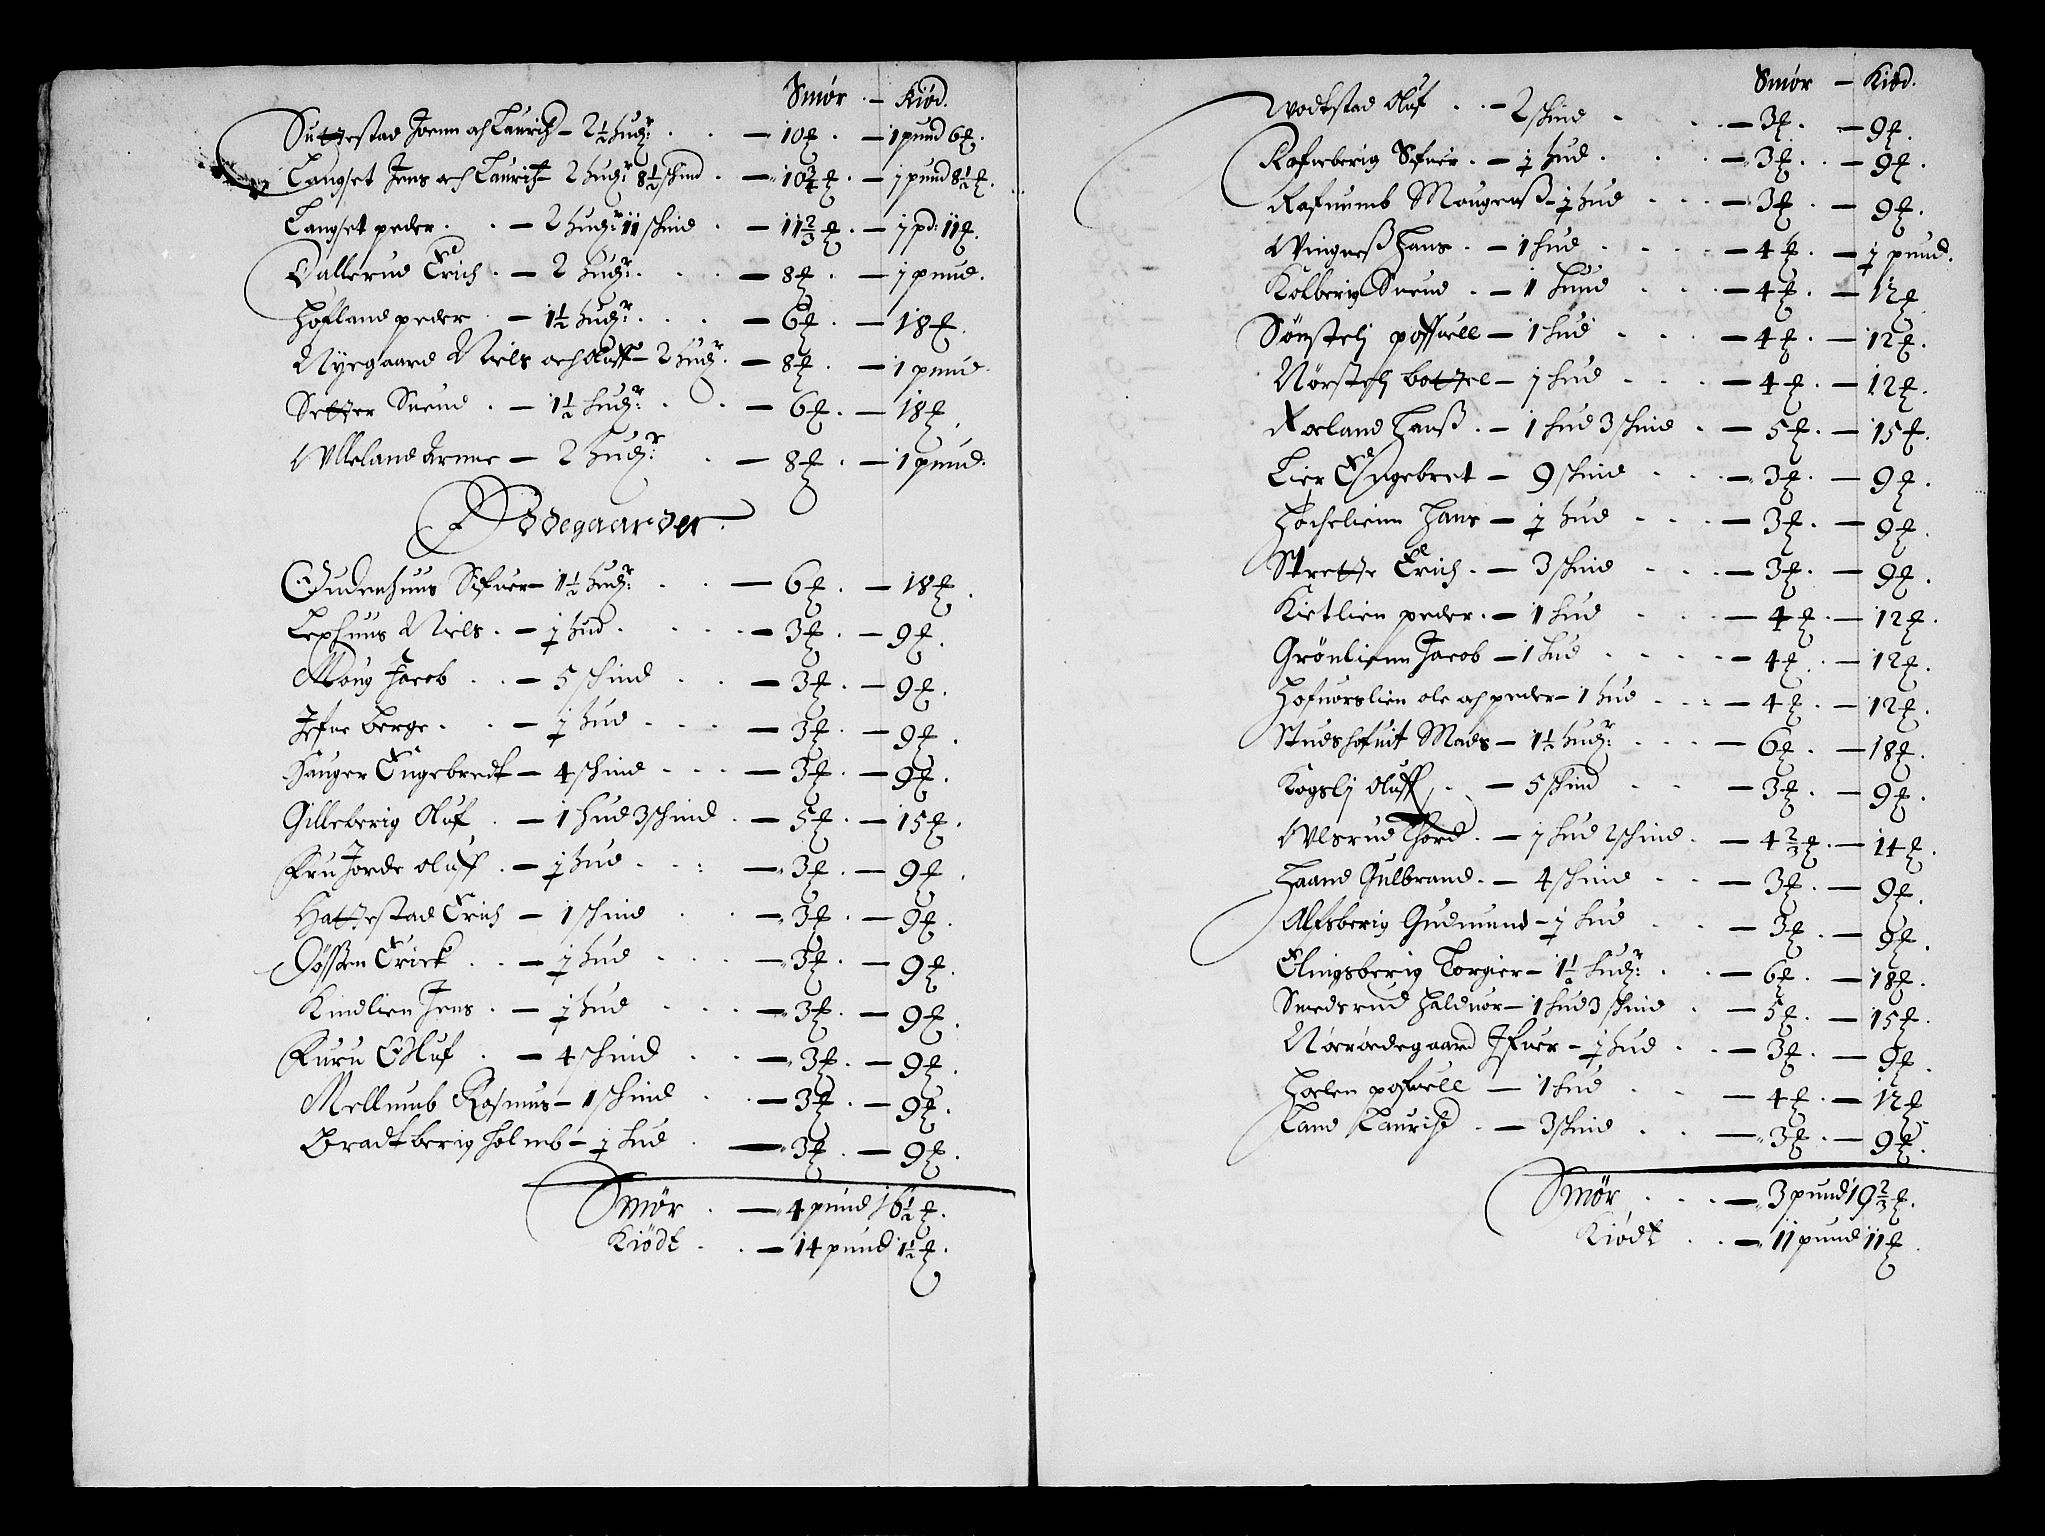 Smør - Kiød.
Suttestad Joenn och Lauridz - 2½ hudr - 10 ℔. - 1 pund 6 ℔.
Langset Jens och Lauridz - 2 hudr 8½ schind - 10¾ ℔. - 1 pund 8½ ℔.
Langset peder - 2 hudr 11 schind - 11⅔ ℔. - 1 pd: 11 ℔.
Vallerud Erich - 2 hudr - 8 ℔. - 1 pund.
Hofland peder - 1½ hudr - 6 ℔. - 18 ℔.
Nyegaard Niels och Oluff - 2 hudr - 8 ℔. - 1 pund.
Setter Suend - 1½ hudr - 6 ℔. - 18 ℔.
Ulleland Arnne - 2 hudr - 8 ℔. - 1 pund.
Ødegaarder
Gudenhuus Sifuer - 1½ hudr - 6 ℔. - 18 ℔.
Lephuus Niels - ½ hud - 3 ℔. - 9 ℔.
Moug Jacob - 5 schind - 3 ℔. - 9 ℔.
Jefne Berge - ½ hud - 3 ℔. - 9 ℔.
Hauger Engebredt - 4 schind - 3 ℔. - 9 ℔.
Gilleberig Oluf - 1 hud 3 schind - 5 ℔. - 15 ℔.
Fru Jorde oluff - ½ hud - 3 ℔. - 9 ℔.
Hattestad Erich - 1 schind - 3 ℔. - 9 ℔.
Døssen Erick - ½ hud - 3 ℔. - 9 ℔.
Kindlien Jens - ½ hud - 3 ℔. - 9 ℔.
Furu Oluf - 4 schind - 3 ℔. - 9 ℔.
Mellumb Rasmus - 1 schind - 3 ℔. - 9 ℔.
Bradtberig holmb - ½ hud - 3 ℔. - 9 ℔.
Smør - 4 pund 16½ ℔.
Kiødt - 14 pund 1½ ℔.
Smør - Kiød.
Vodtstad Oluf - 2 schind - 3 ℔. - 9 ℔.
Rafneberig Sifuer - ½ hud - 3 ℔. - 9 ℔.
Rafnumb Mougenß - ½ hud - 3 ℔. - 9 ℔.
Wingneß Hans - 1 hud - 4 ℔. - ½ pund.
Kolberig Suend - 1 huud - 4 ℔. - 12 ℔.
Sønstelj poffuell - 1 hud - 4 ℔. - 12 ℔.
Nørstelj bottel - 1 hud - 4 ℔. - 12 ℔.
Roland Hanß - 1 hud 3 schind - 5 ℔. - 15 ℔.
Lier Engebret - 9 schind - 3 ℔. - 9 ℔.
Hochelienn Hans - ½ hud - 3 ℔. - 9 ℔.
Strette Erich - 3 schind - 3 ℔. - 9 ℔.
Kietlien peder - 1 hud - 4 ℔. - 12 ℔.
Grönlienn Jacob - 1 hud - 4 ℔. - 12 ℔.
Hofuorslien ole och peder - 1 hud - 4 ℔. - 12 ℔.
Studshofuit Mads - 1½ hudr - 6 ℔. - 18 ℔.
Kogslj Oluff - 5 schind - 3 ℔. - 9 ℔.
Ulsrud Thord - 1 hud 2 schind - 4⅔ ℔. - 14 ℔.
Haand Gulbrand - 4 schind - 3 ℔. - 9 ℔.
Alfsberig Gudmund - ½ hud - 3 ℔. - 9 ℔.
Elingsberig Torgier - 1½ hudr - 6 ℔. - 18 ℔.
Smedsrud Halduor - 1 hud 3 schind - 5 ℔. - 15 ℔.
Nørødegaard Ifuer - ½ hud - 3 ℔. - 9 ℔.
Holen pofuell - 1 hud - 4 ℔. - 12 ℔.
Land Lauridz - 3 schind - 3 ℔. - 9 ℔.
Smør - 3 pund 19⅔ ℔.
Kiødt - 11 pund 11 ℔